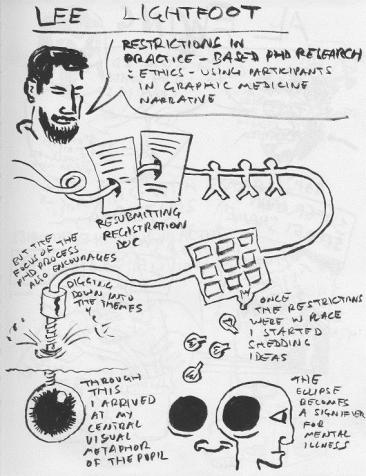 LEE LIGHTFOOT
RESTRICTIONS IN
PRACTICE-BASED PHD RESEARCH
: ETHICS - USING PARTICIPANTS
IN GRAPHIC MEDICINE
NARRATIVE
RESUBMITTING
REGISTRATION
DOC
BUT THE
FOCUS OF THE
PHD PROCESS
ALSO ENCOURAGES
DIGGING
DOWN INTO
THE THEMES
ONCE
THE RESTRICTIONS
WERE IN PLACE
I STARTED
SHEDDING
IDEAS
THROUGH
THIS
I ARRIVED
AT MY
CENTRAL
VISUAL
METAPHOR
OF THE PUPIL
THE
ELLIPSE
BECOMES
A SIGNIFIER
FOR
MENTAL
ILLNESS